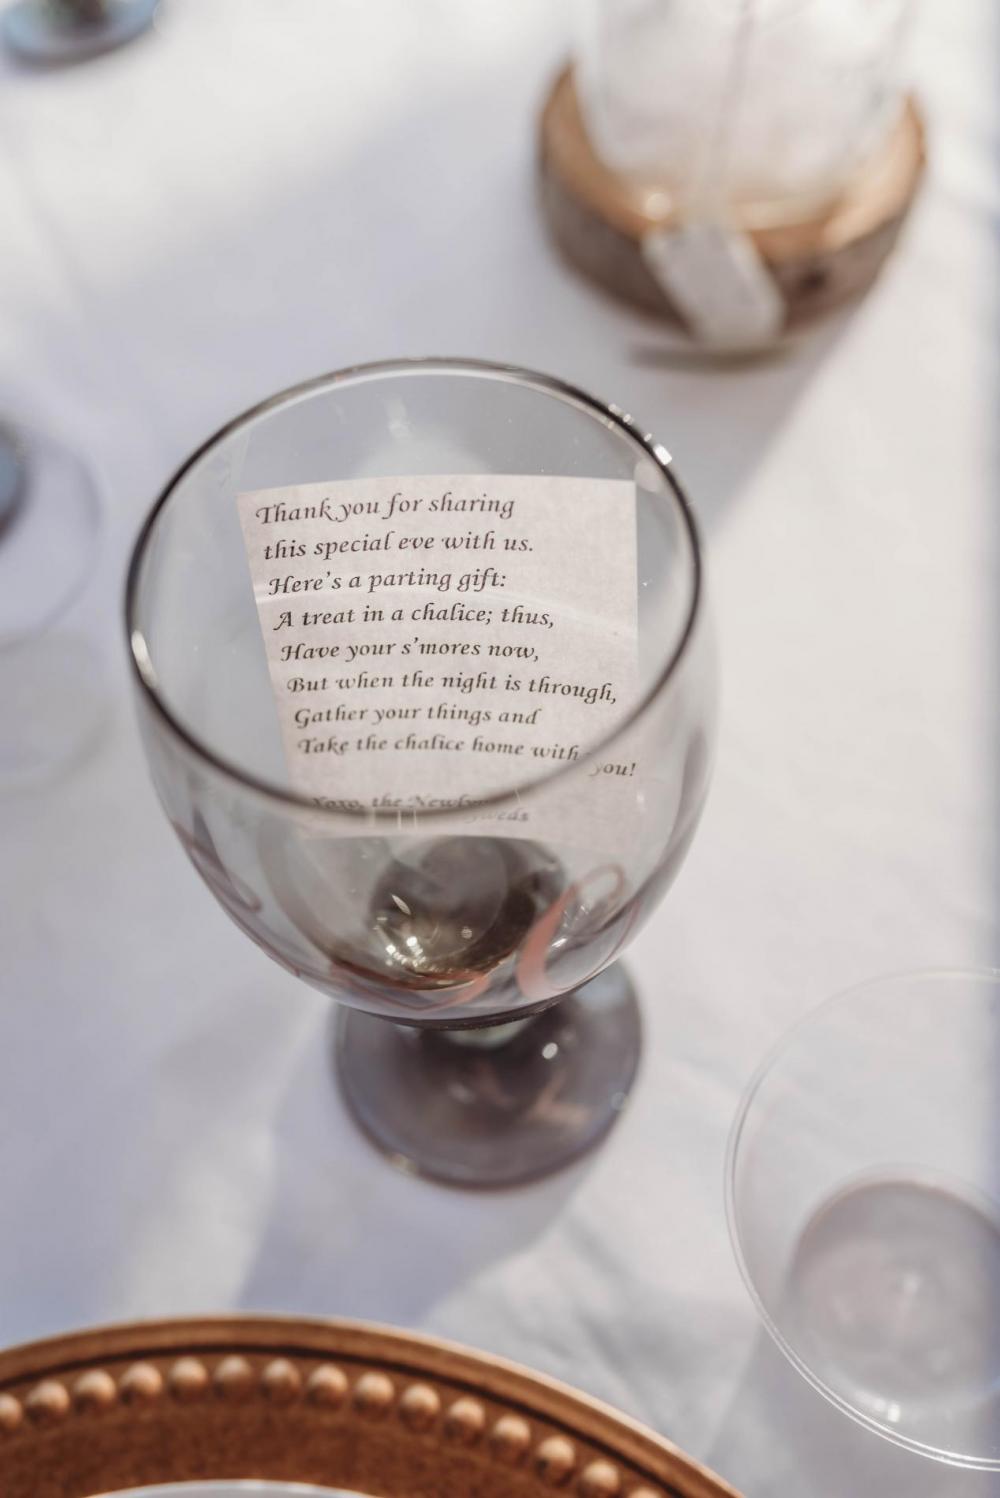 Thank you for sharing
this special eve with us.
Here's a parting gift:
A treat in a chalice; thus,
Have your s'mores now,
But when the night is through,
Gather your things and
Take the chalice home with you!
Xoxo, the Newlyweds